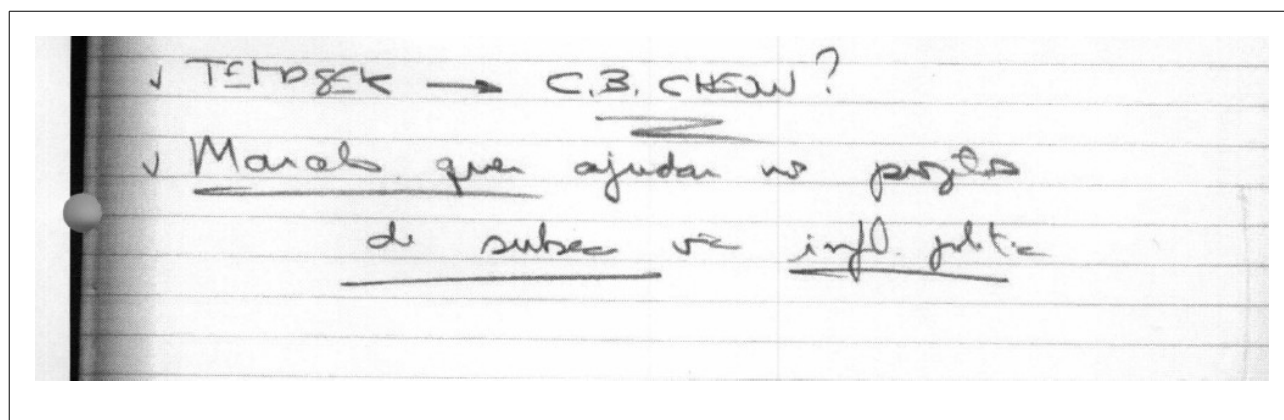 ✓ TENDSEK → C.B. CHEON?
✓ Marcelo quer ajudar no projeto
de subsea via infl. politic